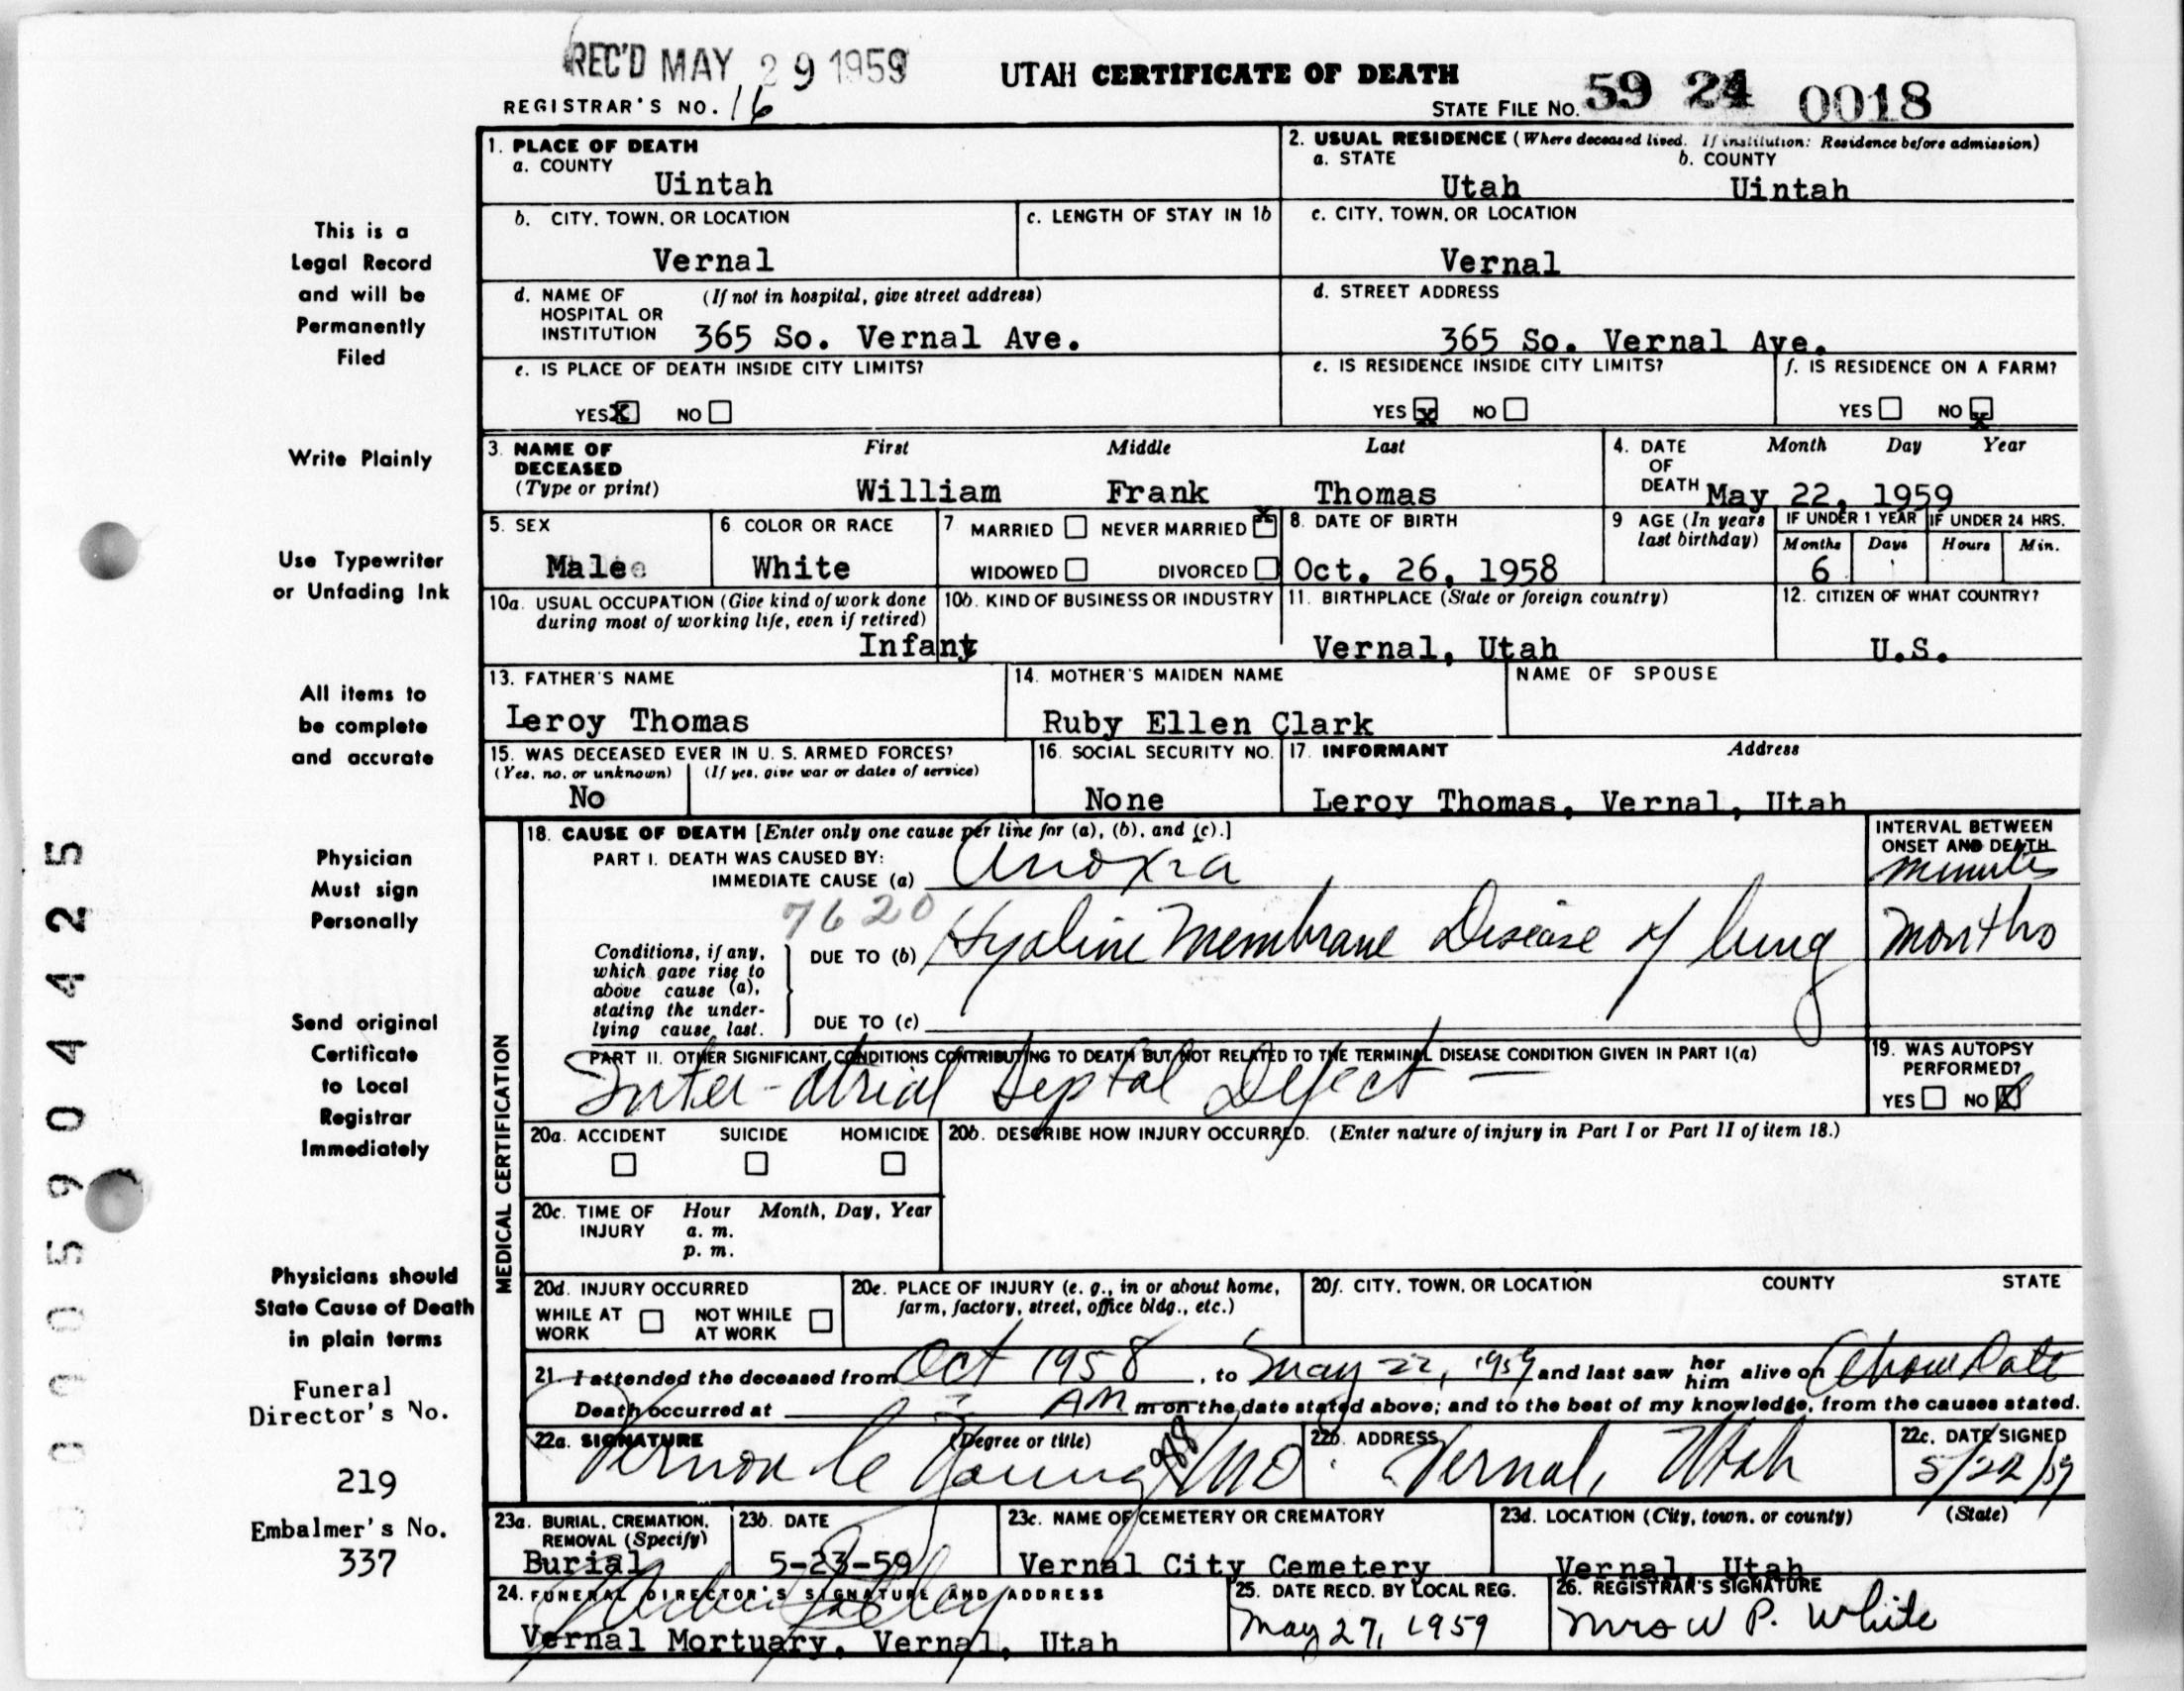 REC'D MAY 29 1959
UTAH CERTIFICATE OF DEATH
REGISTRAR'S NO. 16
STATE FILE NO. 59 24 0018
1. PLACE OF DEATH
a. COUNTY
Uintah
2. USUAL RESIDENCE (Where deceased lived. If institution: Residence before admission)
a. STATE b. COUNTY
Utah Uintah
b. CITY, TOWN, OR LOCATION
Vernal
c. LENGTH OF STAY IN 1b
c. CITY, TOWN, OR LOCATION
Vernal
d. NAME OF HOSPITAL OR INSTITUTION (If not in hospital, give street address)
365 So. Vernal Ave.
d. STREET ADDRESS
365 So. Vernal Ave.
e. IS PLACE OF DEATH INSIDE CITY LIMITS?
YES X NO
e. IS RESIDENCE INSIDE CITY LIMITS?
YES x NO
f. IS RESIDENCE ON A FARM?
YES NO x
3. NAME OF DECEASED (Type or print)
First Middle Last
William Frank Thomas
4. DATE OF DEATH Month Day Year
May 22, 1959
5. SEX
Male
6 COLOR OR RACE
White
7 MARRIED NEVER MARRIED x
WIDOWED DIVORCED
8. DATE OF BIRTH
Oct. 26, 1958
9 AGE (In years last birthday)
IF UNDER 1 YEAR IF UNDER 24 HRS.
Months Days Hours Min.
6
10a. USUAL OCCUPATION (Give kind of work done during most of working life, even if retired)
Infant
10b. KIND OF BUSINESS OR INDUSTRY
11. BIRTHPLACE (State or foreign country)
Vernal, Utah
12. CITIZEN OF WHAT COUNTRY?
U.S.
13. FATHER'S NAME
Leroy Thomas
14. MOTHER'S MAIDEN NAME
Ruby Ellen Clark
NAME OF SPOUSE
15. WAS DECEASED EVER IN U. S. ARMED FORCES?
(Yes, no, or unknown) (If yes, give war or dates of service)
No
16. SOCIAL SECURITY NO.
None
17. INFORMANT Address
Leroy Thomas, Vernal, Utah
MEDICAL CERTIFICATION
18. CAUSE OF DEATH [Enter only one cause per line for (a), (b), and (c).]
PART I. DEATH WAS CAUSED BY:
IMMEDIATE CAUSE (a) Anoxia
INTERVAL BETWEEN ONSET AND DEATH
minutes
7620
Conditions, if any, which gave rise to above cause (a), stating the underlying cause last.
DUE TO (b) Hyaline Membrane Disease of lung
months
DUE TO (c)
PART II. OTHER SIGNIFICANT CONDITIONS CONTRIBUTING TO DEATH BUT NOT RELATED TO THE TERMINAL DISEASE CONDITION GIVEN IN PART I(a)
Inter-atrial Septal Defect —
19. WAS AUTOPSY PERFORMED?
YES NO X
20a. ACCIDENT SUICIDE HOMICIDE
20b. DESCRIBE HOW INJURY OCCURRED. (Enter nature of injury in Part I or Part II of item 18.)
20c. TIME OF INJURY Hour Month, Day, Year
a. m.
p. m.
20d. INJURY OCCURRED
WHILE AT WORK NOT WHILE AT WORK
20e. PLACE OF INJURY (e. g., in or about home, farm, factory, street, office bldg., etc.)
20f. CITY, TOWN, OR LOCATION COUNTY STATE
21. I attended the deceased from Oct 1958, to May 22, 1959 and last saw her him alive on Above Date
Death occurred at AM m on the date stated above; and to the best of my knowledge, from the causes stated.
22a. SIGNATURE (Degree or title)
Vernon Young MD
22b. ADDRESS
Vernal, Utah
22c. DATE SIGNED
5/22/59
23a. BURIAL, CREMATION, REMOVAL (Specify)
Burial
23b. DATE
5-23-59
23c. NAME OF CEMETERY OR CREMATORY
Vernal City Cemetery
23d. LOCATION (City, town, or county) (State)
Vernal, Utah
24. FUNERAL DIRECTOR'S SIGNATURE AND ADDRESS
Vernal Mortuary, Vernal, Utah
25. DATE RECD. BY LOCAL REG.
May 27, 1959
26. REGISTRAR'S SIGNATURE
Mrs W P. White
This is a
Legal Record
and will be
Permanently
Filed
Write Plainly
Use Typewriter
or Unfading Ink
All items to
be complete
and accurate
Physician
Must sign
Personally
Send original
Certificate
to Local
Registrar
Immediately
Physicians should
State Cause of Death
in plain terms
Funeral
Director's No.
219
Embalmer's No.
337
0005904425